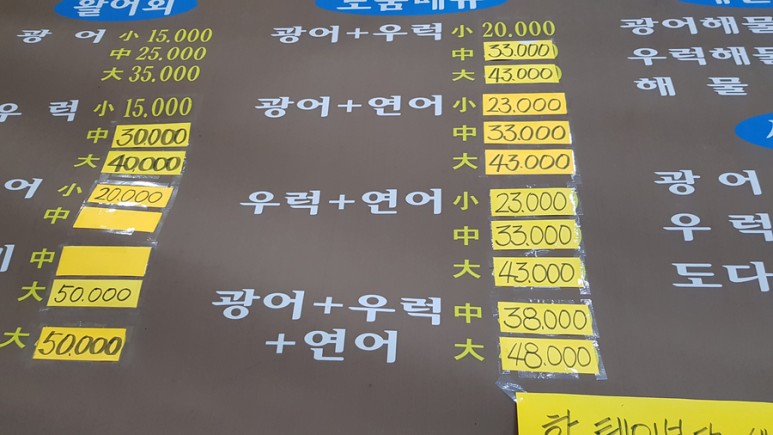 활어회
광어 小 15.000
中 25.000
大 35.000
우럭 小 15.000
中 30.000
大 40.000
어 小 20.000
中
中
大 50.000
大 50.000
모둠메뉴
광어+우럭 小 20.000
中 33.000
大 43.000
광어+연어 小 23.000
中 33.000
大 43.000
우럭+연어 小 23.000
中 33.000
大 43.000
광어+우럭 中 38.000
+연어 大 48.000
광어해물
우럭해물
해물
광어
우럭
도다
한 테이블당